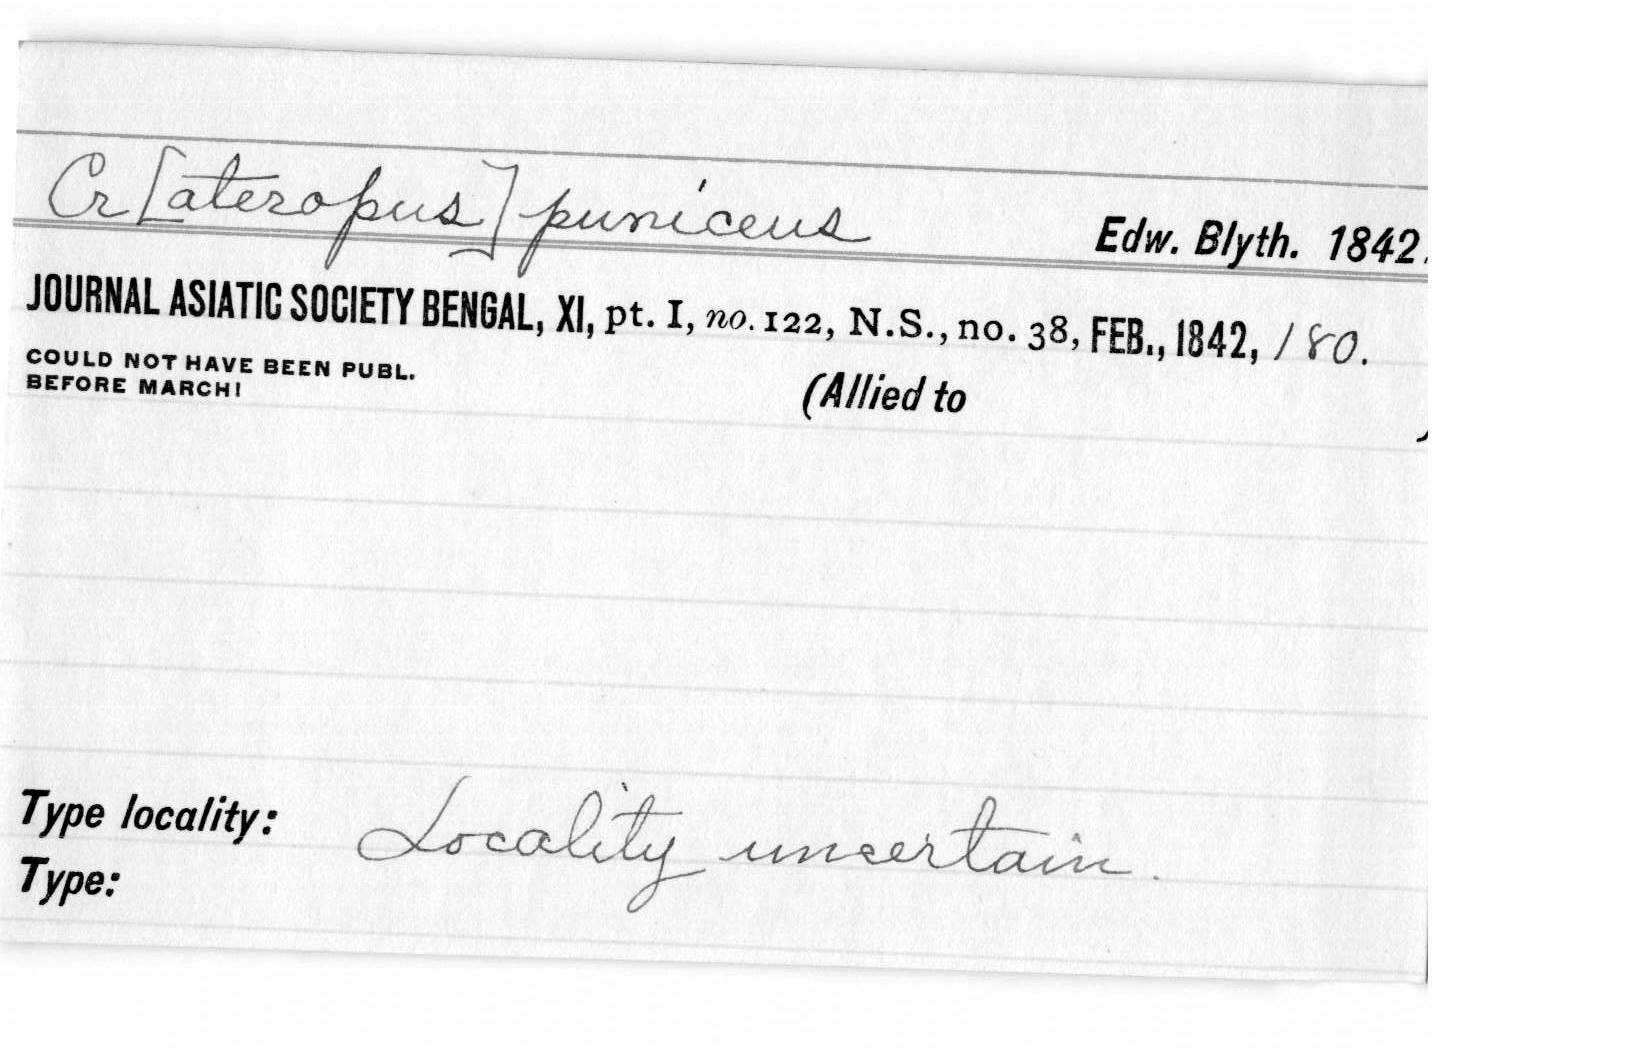 Cr[ateropus] puniceus Edw. Blyth. 1842.
JOURNAL ASIATIC SOCIETY BENGAL, XI, pt. I, no. 122, N.S., no. 38, FEB., 1842, 180.
COULD NOT HAVE BEEN PUBL.
BEFORE MARCH!
(Allied to )
Type locality: Locality uncertain.
Type: